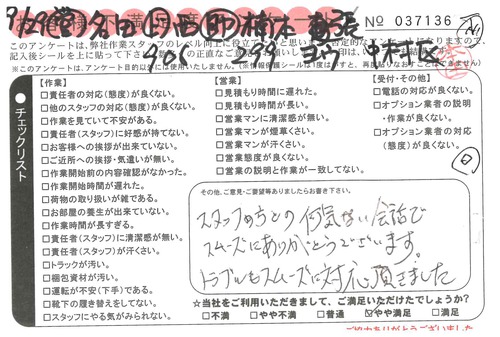 № 037136
このアンケートは、弊社作業スタッフのレベル向上に役立て
記入後シールを上に貼って下さ
チェックリスト
【作業】
□責任者の対応(態度)が良くない。
□他のスタッフの対応(態度)が良くない。
□作業を見ていて不安がある。
□責任者(スタッフ)に好感が持てない。
□お客様への挨拶が出来ていない。
□ご近所への挨拶・気遣いが無い。
□作業開始前の内容確認がなかった。
□作業開始時間が遅れた。
□荷物の取り扱いが雑である。
□お部屋の養生が出来ていない。
□作業時間が長すぎる。
□責任者(スタッフ)に清潔感が無い。
□責任者(スタッフ)が汗くさい。
□トラックが汚い。
□梱包資材が汚い。
□運転が不安(下手)である。
□靴下の履き替えをしてない。
□スタッフにやる気がみられない。
【営業】
□見積もり時間に遅れた。
□見積もり時間が長い。
□営業マンに清潔感が無い。
□営業マンが煙草くさい。
□営業マンが汗くさい。
□営業態度が良くない。
□営業の説明と作業が一致してない。
【受付・その他】
□電話の対応が良くない。
□オプション業者の説明
・作業が良くない。
□オプション業者の対応
(態度)が良くない。
その他、ご意見・ご要望等ありましたらお書き下さい。
スタッフの方との何気ない会話で
スムーズにありがとうございます。
トラブルもスムーズに対応頂きました
☆当社をご利用いただきまして、ご満足いただけたでしょうか?
□不満 □やや不満 □普通 ☑やや満足 □満足
ご協力ありがとうございました